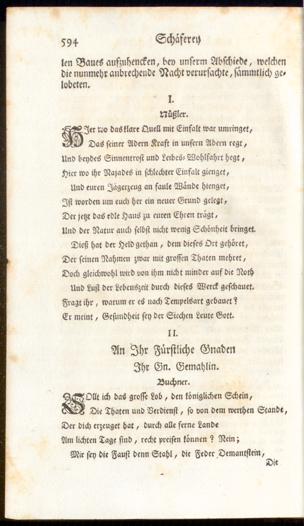 594 Schäferey
len Baues aufzuhencken, bey unserm Abschiede, welchen
die nunmehr anbrechende Nacht verursachte, sämmtlich ge-
lobeten.
I.
Nüßler.
HIer wo das klare Quell mit Einfalt war umringet,
Das seiner Adern Kraft in unsern Adern regt,
Und beydes Sinnentrost und Leibes-Wohlfahrt hegt,
Hier wo ihr Najades in schlechter Einfalt gienget,
Und euren Jägerzeug an faule Wände hienget,
Ist worden um euch her ein neuer Grund gelegt,
Der jetzt das edle Haus zu euren Ehren trägt,
Und der Natur auch selbst nicht wenig Schönheit bringet.
Dieß hat der Held gethan, dem dieses Ort gehöret,
Der seinen Nahmen zwar mit grossen Thaten mehret,
Doch gleichwohl wird von ihm nicht minder auf die Noth
Und Lust der Lebenszeit durch dieses Werck geschauet.
Fragt ihr, warum er es nach Tempelsart gebauet?
Er meint, Gesundheit sey der Siechen Leute Gott.
II.
An Ihr Fürstliche Gnaden
Ihr Gn. Gemahlin.
Buchner.
SOllt ich das grosse Lob, den königlichen Schein,
Die Thaten und Verdienst, so von dem werthen Stande,
Der dich erzeuget hat, durch alle ferne Lande
Am lichten Tage sind, recht preisen können? Nein;
Mir sey die Faust denn Stahl, die Feder Demantstein,
Die